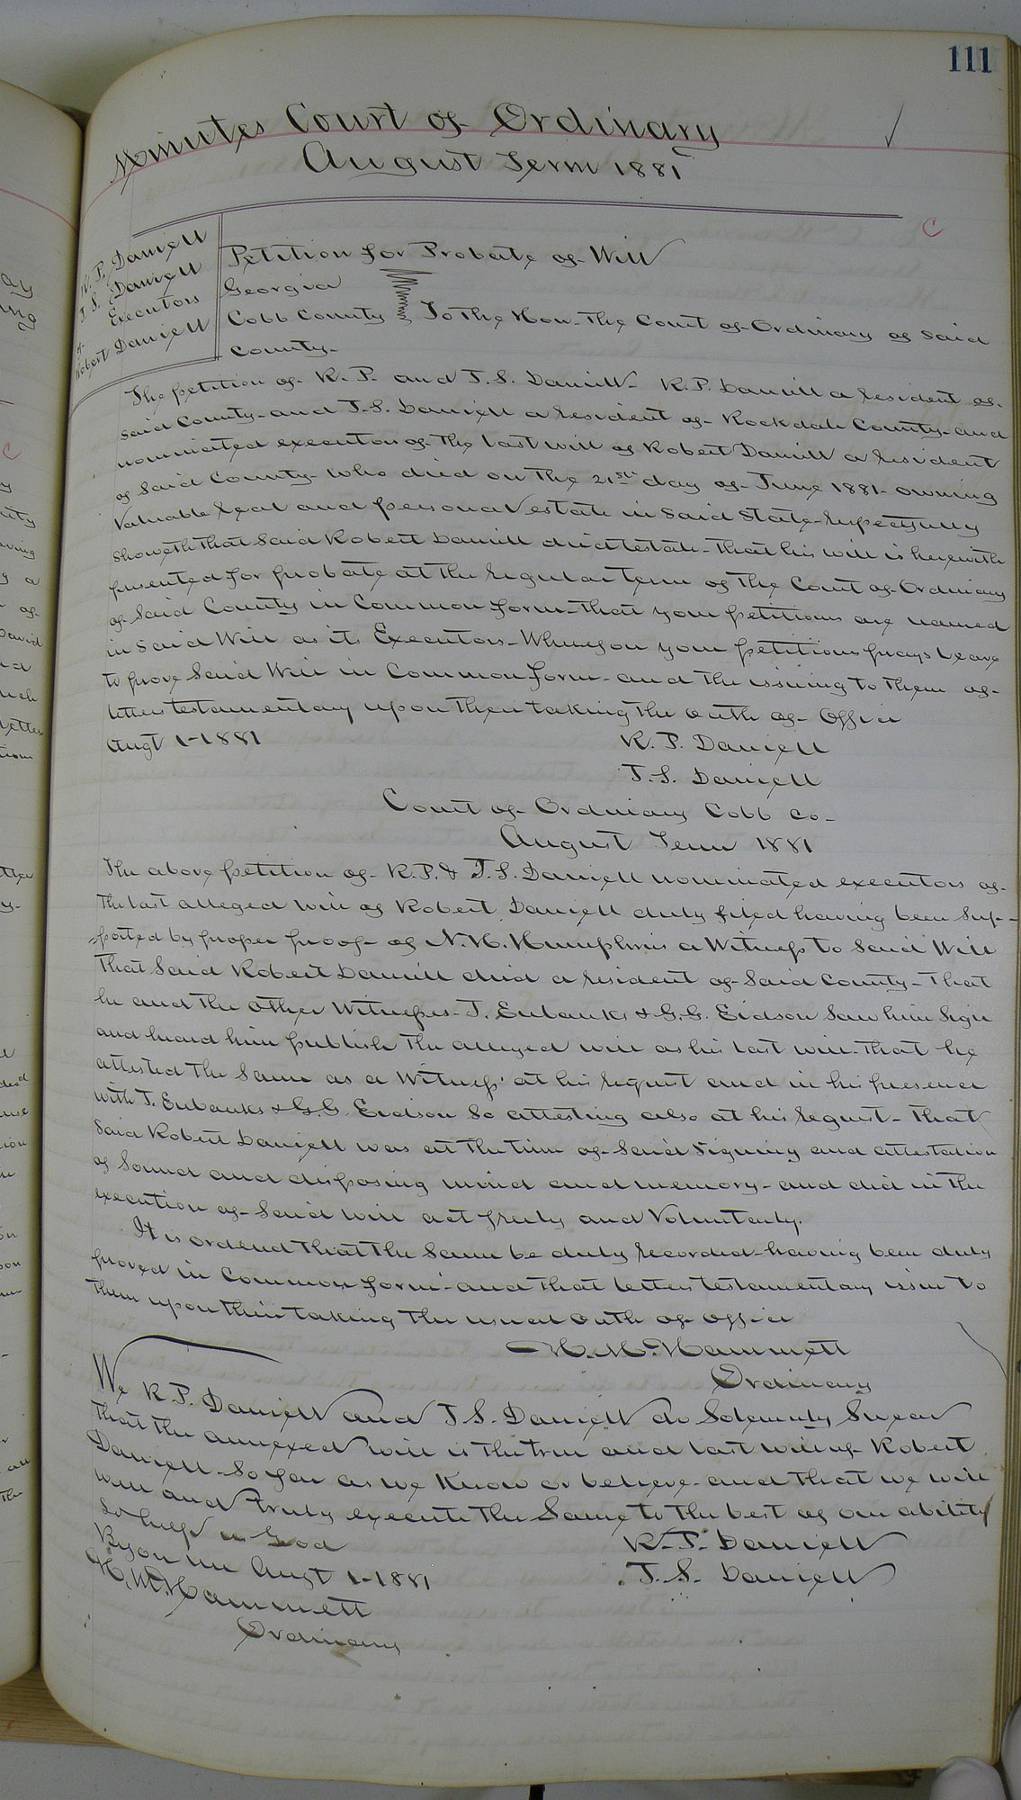 111
Minutes Court of Ordinary
August Term 1881
R. P. Daniell
J. S. Daniell
Executors
of
Robert Daniell
Petition for Probate of Will
Georgia
Cobb County To the Hon. the Court of Ordinary of said
County-
The petition of R. P. and J. S. Daniell- R. P. Daniell a resident of
said County- and J. S. Daniell a resident of Rockdale County- and
nominated executors of the last will of Robert Daniell a resident
of said County- who died on the 21st day of June 1881- owning
valuable real and personal estate in said State- respectfully
showeth that said Robert Daniell died testate- that his will is herewith
presented for probate at the regular term of the Court of Ordinary
of said County in Common form- that your petitioners are named
in said Will as its Executors- Whereupon your petitioners prays leave
to prove said Will in Common form- and the issuing to them of
letters testamentary upon their taking the oath of office
Augt 1-1881
R. P. Daniell
J. S. Daniell
Court of Ordinary Cobb Co-
August Term 1881
The above petition of R. P. & J. S. Daniell nominated executors of
the last alleged will of Robert Daniell duly filed having been sup-
ported by proper proof- of N. N. Humphries a Witness to said Will
that said Robert Daniell died a resident of said County- That
he and the other Witnesses- J. Eubanks & G. G. Eidson saw him sign
and heard him publish the alleged will as his last will- that he
attested the same as a Witness at his request and in his presence
with J. Eubanks & G. G. Eidson so attesting also at his request- That
said Robert Daniell was at the time of said signing and attestation
of sound and disposing mind and memory- and did in the
execution of said will act freely and Voluntarily.
It is ordered that the same be duly recorded- having been duly
proved in Common form- and that letters testamentary issue to
them upon their taking the usual oath of office
H. M. Hammett
Ordinary
We R. P. Daniell and J. S. Daniell do Solemnly Swear
that the annexed will is the true and last will of Robert
Daniell- So far as we Know or believe- and that we will
well and truly execute the same to the best of our ability
So help us God
R. P. Daniell
J. S. Daniell
Before me Augt 1-1881
H. M. Hammett
Ordinary